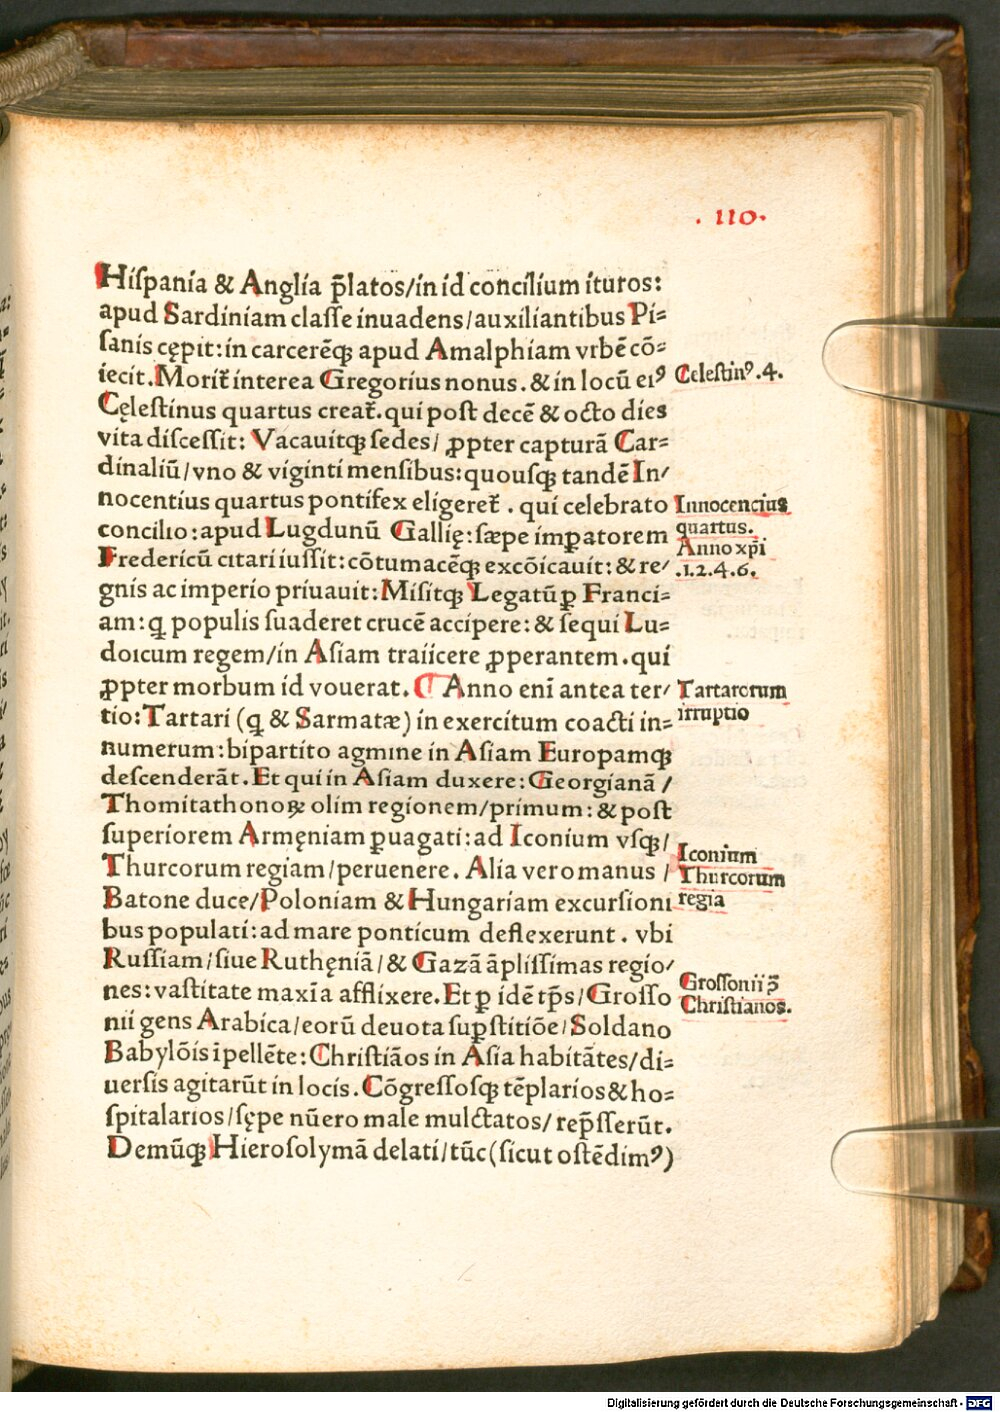 . 110.
Hiſpania & Anglia p̄latos/in id concilium ituros:
apud Sardiniam claſſe inuadens/auxiliantibus Pi⸗
ſanis cępit:in carcerēq̢ apud Amalphiam vrbē cō⸗
iecit.Morit̄ interea Gregorius nonus.& in locū eiꝰ
Cęleſtinus quartus creat̄.qui poſt decē & octo dies
vita diſceſſit: Vacauitq̢ ſedes/ ꝓpter capturā Car⸗
dinaliū/vno & viginti menſibus:quouſq̢ tandē In/
nocentius quartus pontifex eligeret̄ . qui celebrato
concilio:apud Lugdunū Gallię:ſæpe imꝑatorem
Fredericū citari iuſſit:cōtumacēq̢ excōicauit:& re/
gnis ac imperio priuauit:Miſitq̢ Legatū ꝑ Franci⸗
am:q̢ populis ſuaderet crucē accipere:& ſequi Lu⸗
doicum regem/in Aſiam traiicere ꝓperantem.qui
ꝓpter morbum id vouerat. ¶ Anno eni̅ antea ter/
tio:Tartari (q̢ & Sarmatæ) in exercitum coacti in⸗
numerum:bipartito agmine in Aſiam Europamq̢
deſcenderāt.Et qui in Aſiam duxere:Georgianā /
Thomitathonoꝝ olim regionem/primum:& poſt
ſuperiorem Armęniam ꝑuagati:ad Iconium vſq̢/
Thurcorum regiam/peruenere. Alia vero manus /
Batone duce/Poloniam & Hungariam excurſioni
bus populati:ad mare ponticum deflexerunt . vbi
Ruſſiam/ſiue Ruthęniā/& Gazā āpliſſimas regio/
nes:vaſtitate maxi̅a afflixere.Et ꝑ idē tp̄s/Groſſo
nii gens Arabica/eorū deuota ſuꝑſtitiōe/Soldano
Babylōis i̅pellēte:Chriſtiāos in Aſia habitātes/di⸗
uerſis agitarūt in locis.Cōgreſſoſq̢ tēplarios & ho⸗
ſpitalarios/ſępe nūero male mulctatos/rep̄ſſerūt.
Demūq̢ Hieroſolymā delati/tūc(ſicut oſtēdimꝰ)
Celeſtinꝰ.4.
Innocencius
quartus.
Anno xp̄i
.1.2.4.6.
Tartarorum
irruptio
Iconium
Thurcorum
regia
Groſſonii p̄
Chriſtianos.
Digitalisierung gefördert durch die Deutsche Forschungsgemeinschaft - DFG